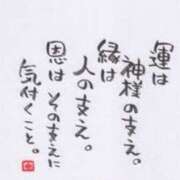 運は
神様の支え。
縁は
人の支え。
恩は その支えに
気付くこと。